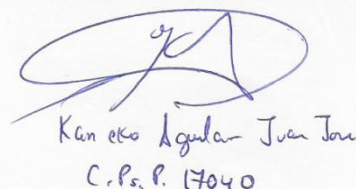 Kaneko Aguilar Juan José
C.Ps.P. 17040